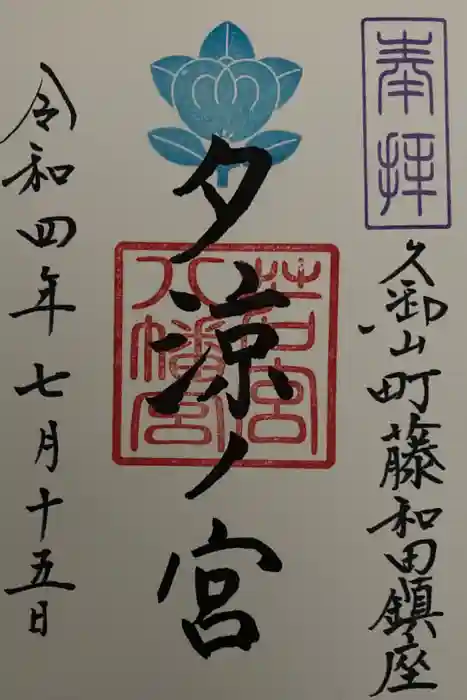 奉拝
久御山町藤和田鎮座
夕涼ノ宮
若宮
八幡宮
令和四年七月十五日